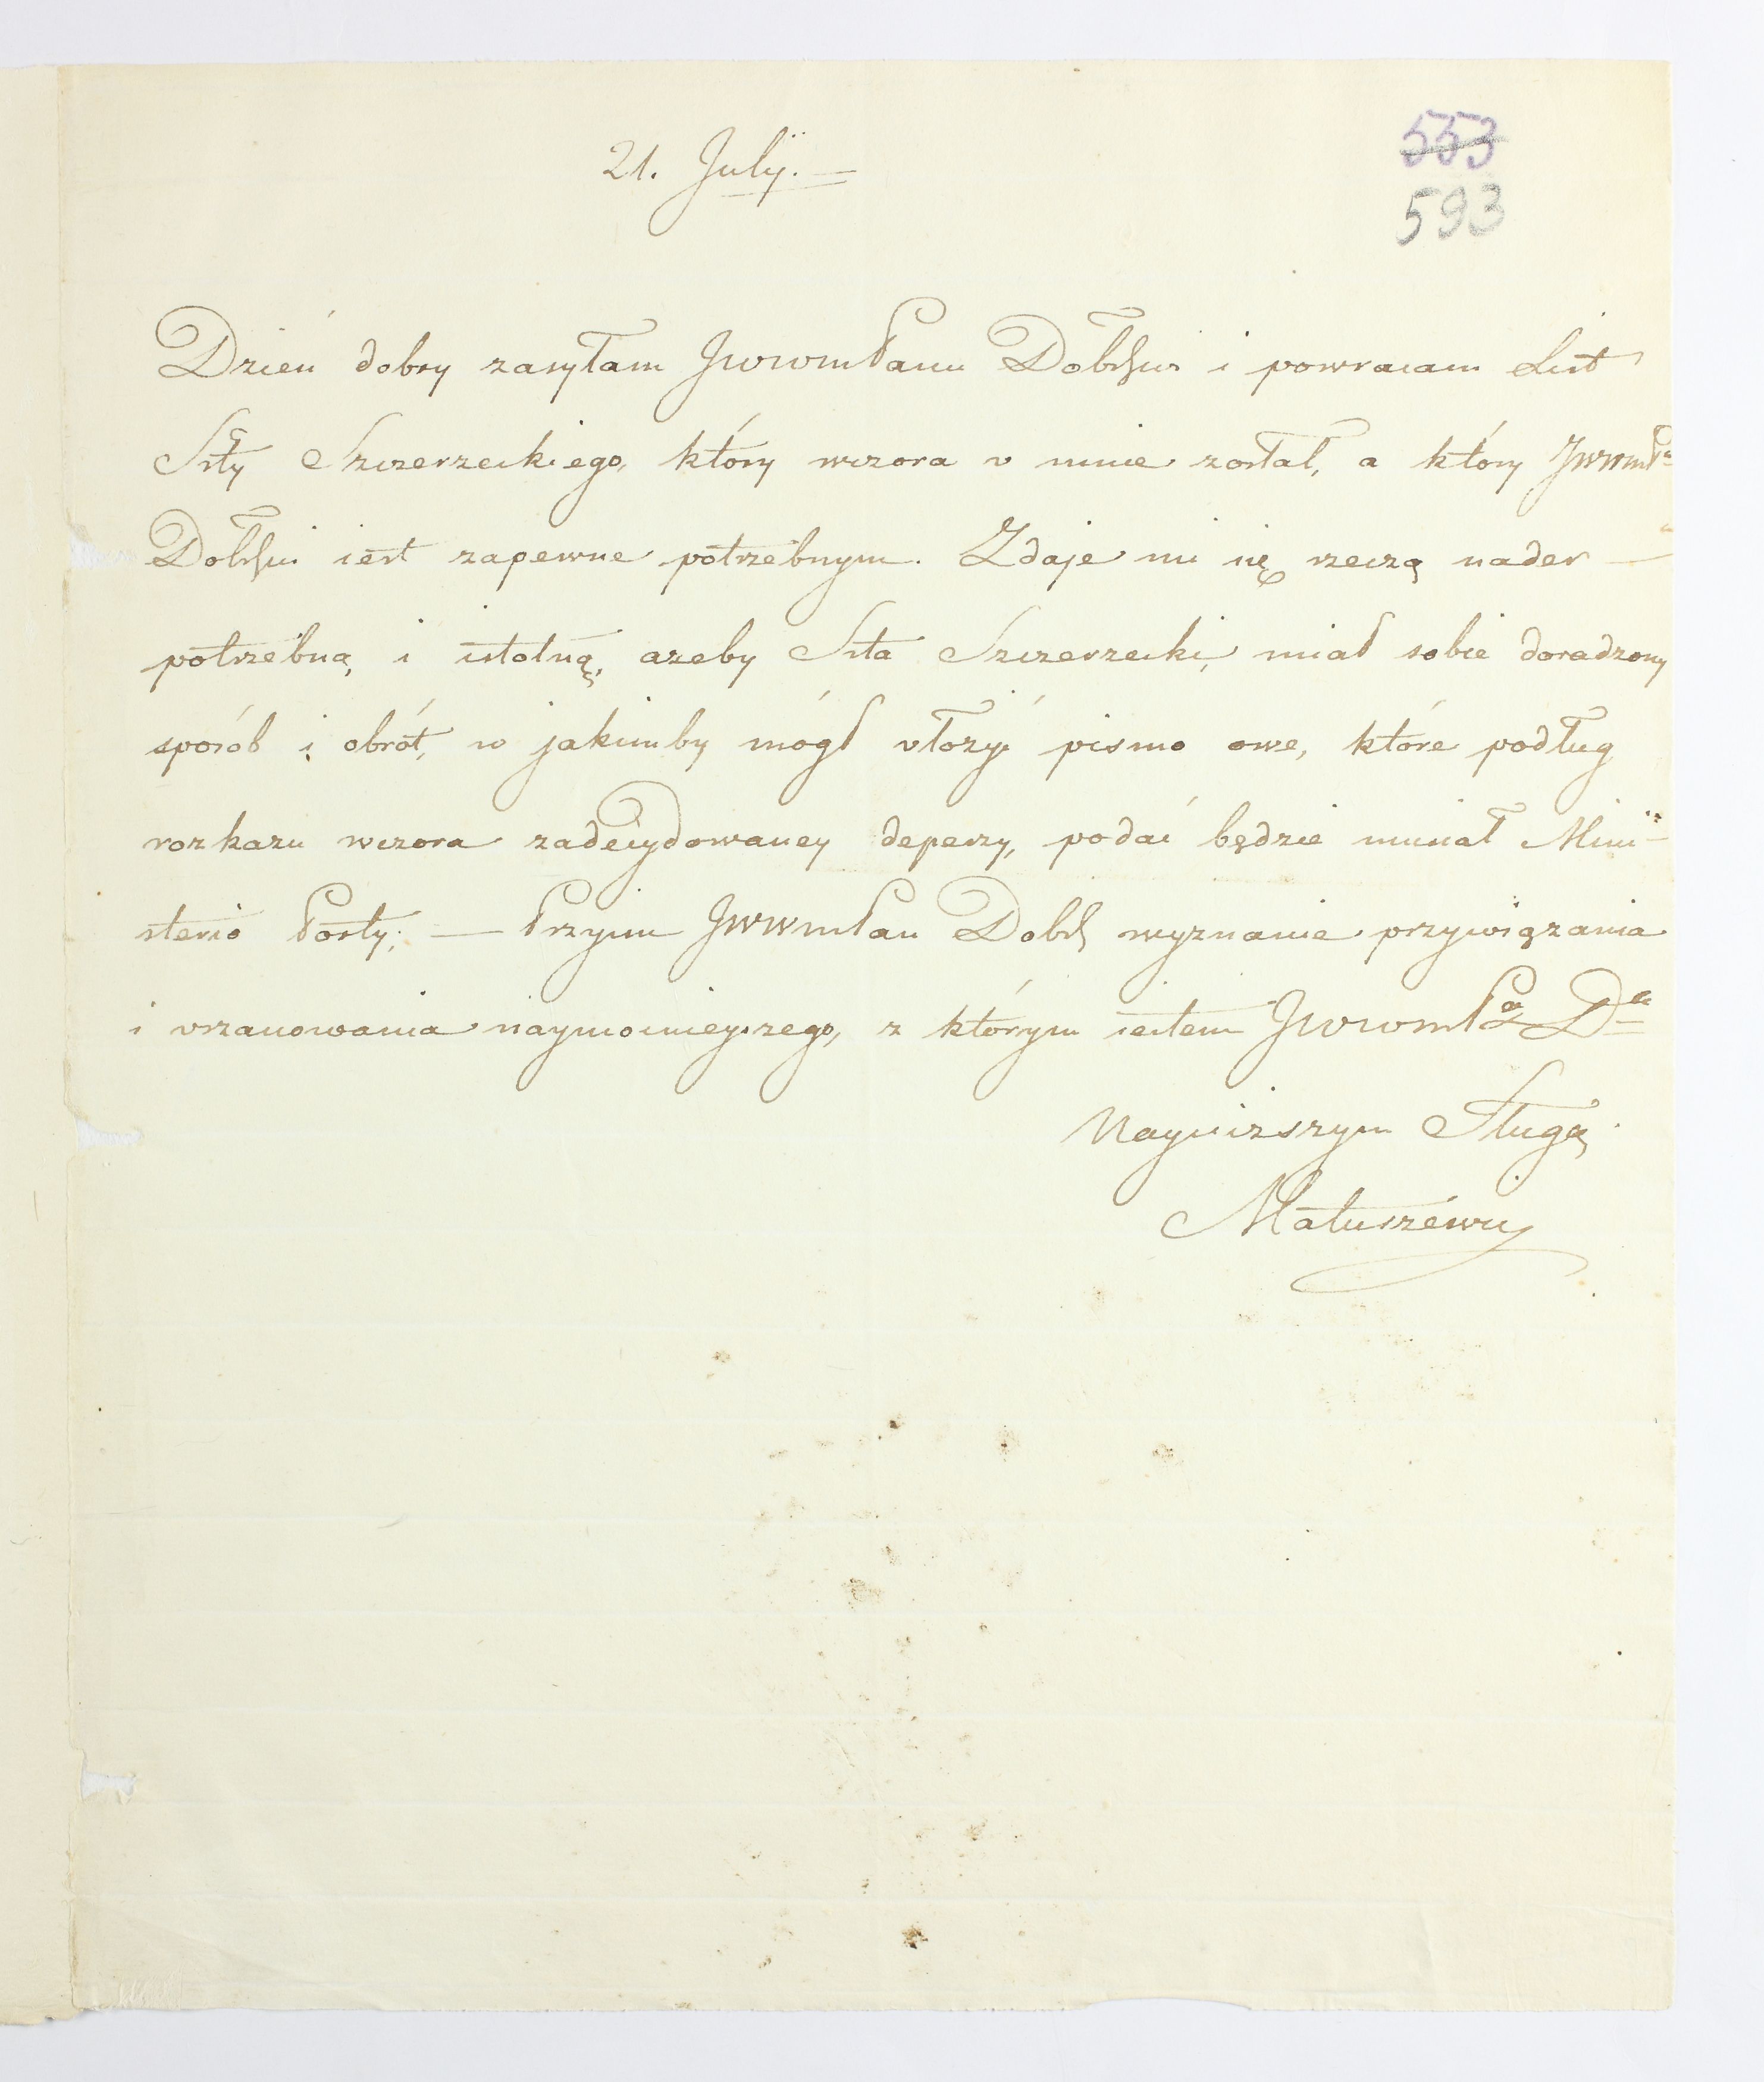 21. Julÿ.
553
593
Dzień dobry zasyłam JWWmPanu Dobr. i powracam List
Szczerzeckiego, który wczora v mnie został, a który JWWmPa
iest zapewne potrzebnym. Zdaje mi się rzeczą nader
potrzebną, i istotną, azeby Szczerzecki, miał sobie doradzony
sposób i obrót, w jakimby mógł vłożyć pismo owe, które podług
rozkazu wczora zadecydowaney depeszy, podać będzie musiał Mini-
sterio Porty; — Przyim JWWmPan Dobr. wyznanie przywiązania
i vszanowania naymocnieyszego, z którym iestem JWWmPa Da
Nayniższym Sługą
Matuszewic